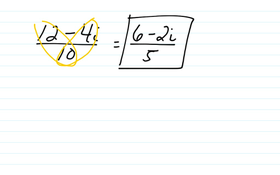 (12 - 4i)/10 = (6 - 2i)/5